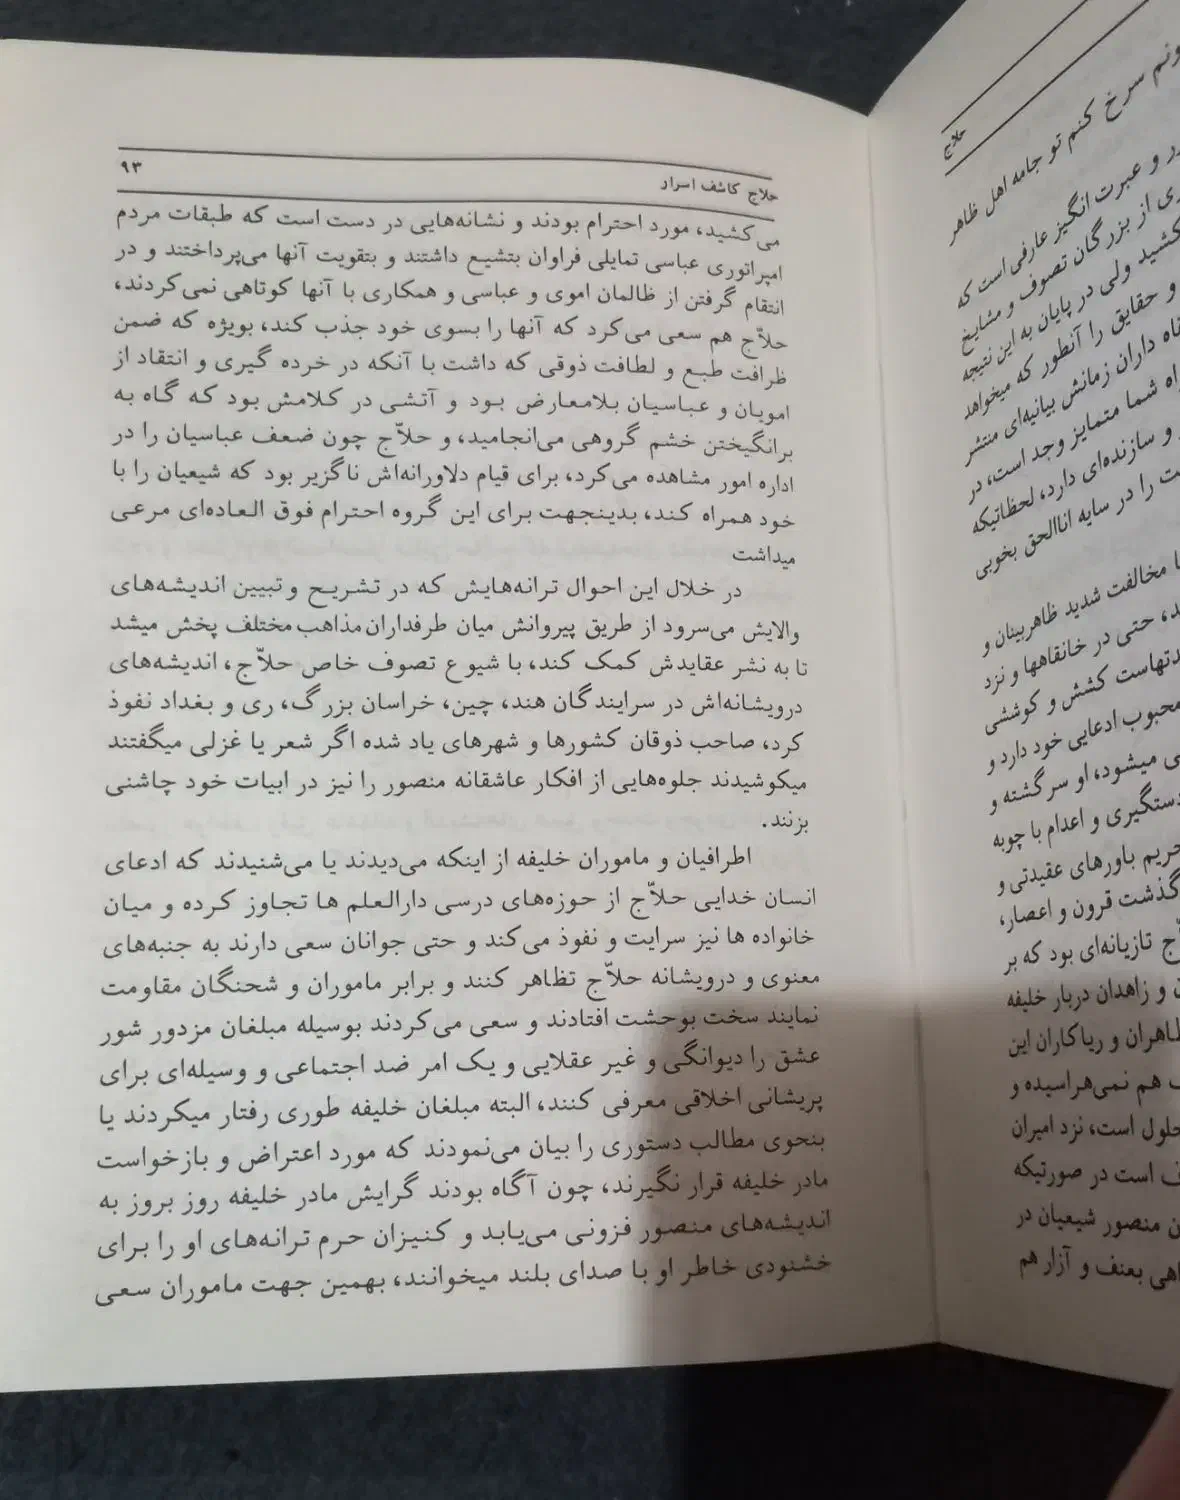 حلاج کاشف اسرار ۹۳
می‌کشید، مورد احترام بودند و نشانه‌هایی در دست است که طبقات مردم
امپراتوری عباسی تمایلی فراوان بتشیع داشتند و بتقویت آنها می‌پرداختند و در
انتقام گرفتن از ظالمان اموی و عباسی و همکاری با آنها کوتاهی نمی‌کردند،
حلاّج هم سعی می‌کرد که آنها را بسوی خود جذب کند، بویژه که ضمن
ظرافت طبع و لطافت ذوقی که داشت با آنکه در خرده گیری و انتقاد از
امویان و عباسیان بلامعارض بود و آتشی در کلامش بود که گاه به
برانگیختن خشم گروهی می‌انجامید، و حلاّج چون ضعف عباسیان را در
اداره امور مشاهده می‌کرد، برای قیام دلاورانه‌اش ناگزیر بود که شیعیان را با
خود همراه کند، بدینجهت برای این گروه احترام فوق العاده‌ای مرعی
میداشت
در خلال این احوال ترانه‌هایش که در تشریح و تبیین اندیشه‌های
والایش می‌سرود از طریق پیروانش میان طرفداران مذاهب مختلف پخش میشد
تا به نشر عقایدش کمک کند، با شیوع تصوف خاص حلاّج، اندیشه‌های
درویشانه‌اش در سرایندگان هند، چین، خراسان بزرگ، ری و بغداد نفوذ
کرد، صاحب ذوقان کشورها و شهرهای یاد شده اگر شعر یا غزلی میگفتند
میکوشیدند جلوه‌هایی از افکار عاشقانه منصور را نیز در ابیات خود چاشنی
بزنند.
اطرافیان و ماموران خلیفه از اینکه می‌دیدند یا می‌شنیدند که ادعای
انسان خدایی حلاّج از حوزه‌های درسی دارالعلم ها تجاوز کرده و میان
خانواده ها نیز سرایت و نفوذ می‌کند و حتی جوانان سعی دارند به جنبه‌های
معنوی و درویشانه حلاّج تظاهر کنند و برابر ماموران و شحنگان مقاومت
نمایند سخت بوحشت افتادند و سعی می‌کردند بوسیله مبلغان مزدور شور
عشق را دیوانگی و غیر عقلایی و یک امر ضد اجتماعی و وسیله‌ای برای
پریشانی اخلاقی معرفی کنند، البته مبلغان خلیفه طوری رفتار میکردند یا
بنحوی مطالب دستوری را بیان می‌نمودند که مورد اعتراض و بازخواست
مادر خلیفه قرار نگیرند، چون آگاه بودند گرایش مادر خلیفه روز بروز به
اندیشه‌های منصور فزونی می‌یابد و کنیزان حرم ترانه‌های او را برای
خشنودی خاطر او با صدای بلند میخوانند، بهمین جهت ماموران سعی
حلاج
سرخ کنم تو جامه اهل ظاهر
و عبرت انگیز عارفی است که
از بزرگان تصوف و مشایخ
ولی در پایان به این نتیجه
و حقایق را آنطور که میخواهد
داران زمانش بیانیه‌ای منتشر
شما متمایز وجد است، در
و سازنده‌ای دارد، لحظاتیکه
را در سایه اناالحق بخوبی
مخالفت شدید ظاهربینان و
حتی در خانقاهها و نزد
کشش و کوششی
محبوب ادعایی خود دارد و
میشود، او سرگشته و
دستگیری و اعدام با چوبه
حریم باورهای عقیدتی و
گذشت قرون و اعصار،
تازیانه‌ای بود که بر
و زاهدان دربار خلیفه
و ریاکاران این
هم نمی‌هراسیده و
حلول است، نزد امیران
است در صورتیکه
منصور شیعیان در
بعنف و آزار هم